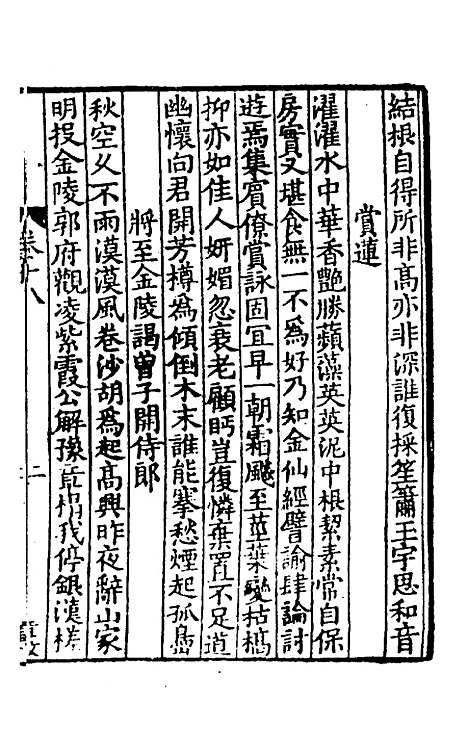 結根自得所非高亦非深誰復採笙簫王宇思和音
賞蓮
濯濯水中華香艷勝蘋藻英英泥中根絜素常自保
房實又堪食無一不為好乃知金仙經譬諭肆論討
遊焉集賓僚賞詠固宜早一朝霜飈至莖葉變枯槁
抑亦如佳人妍媚忽衰老顧眄豈復憐棄置不足道
幽懷向君開芳樽為傾倒木末誰能搴愁煙起孤島
將至金陵謁曾子開侍郎
秋空久不雨漠漠風卷沙胡為起高興昨夜辭山家
明投金陵郭府觀凌紫霞公解豫章榻我停銀漢槎
卷十八
二